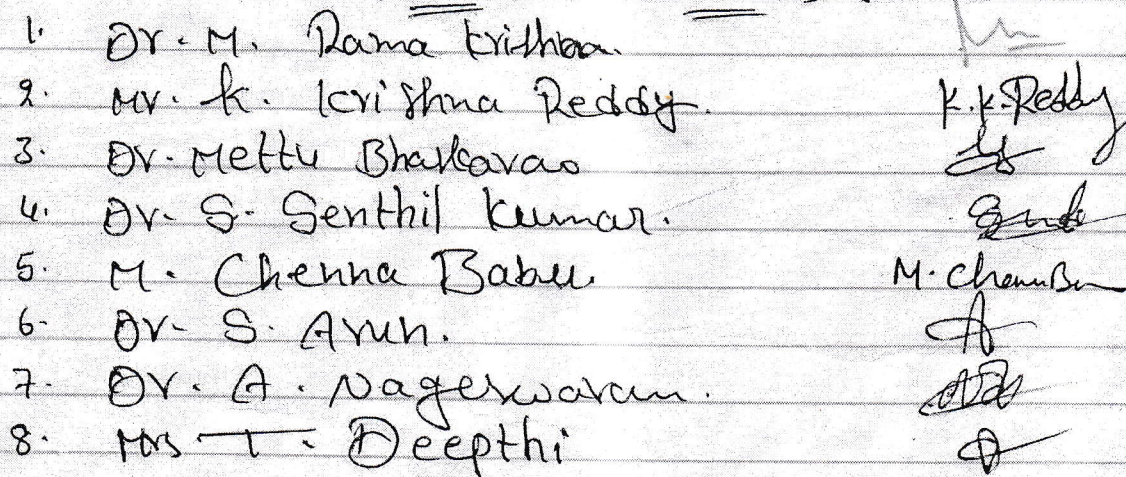 1. Dr. M. Rama Krishna.
2. Mr. K. Krishna Reddy. K.K.Reddy
3. Dr. Mettu Bhaskarao
4. Dr. S. Senthil Kumar.
5. M. Chenna Babu M. Chenna
6. Dr. S. Arun.
7. Dr. A. Nageswaran.
8. Mrs T. Deepthi